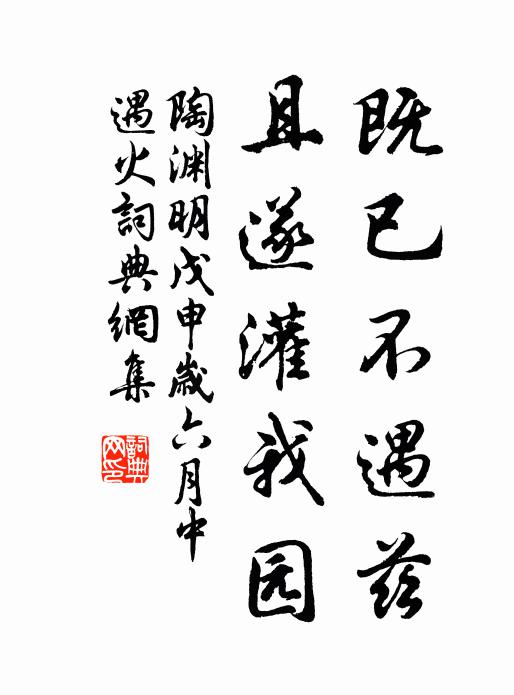 既已不遇兹
且遂灌我园
陶渊明戊申歲六月中
遇火詞典網集
詞典网印